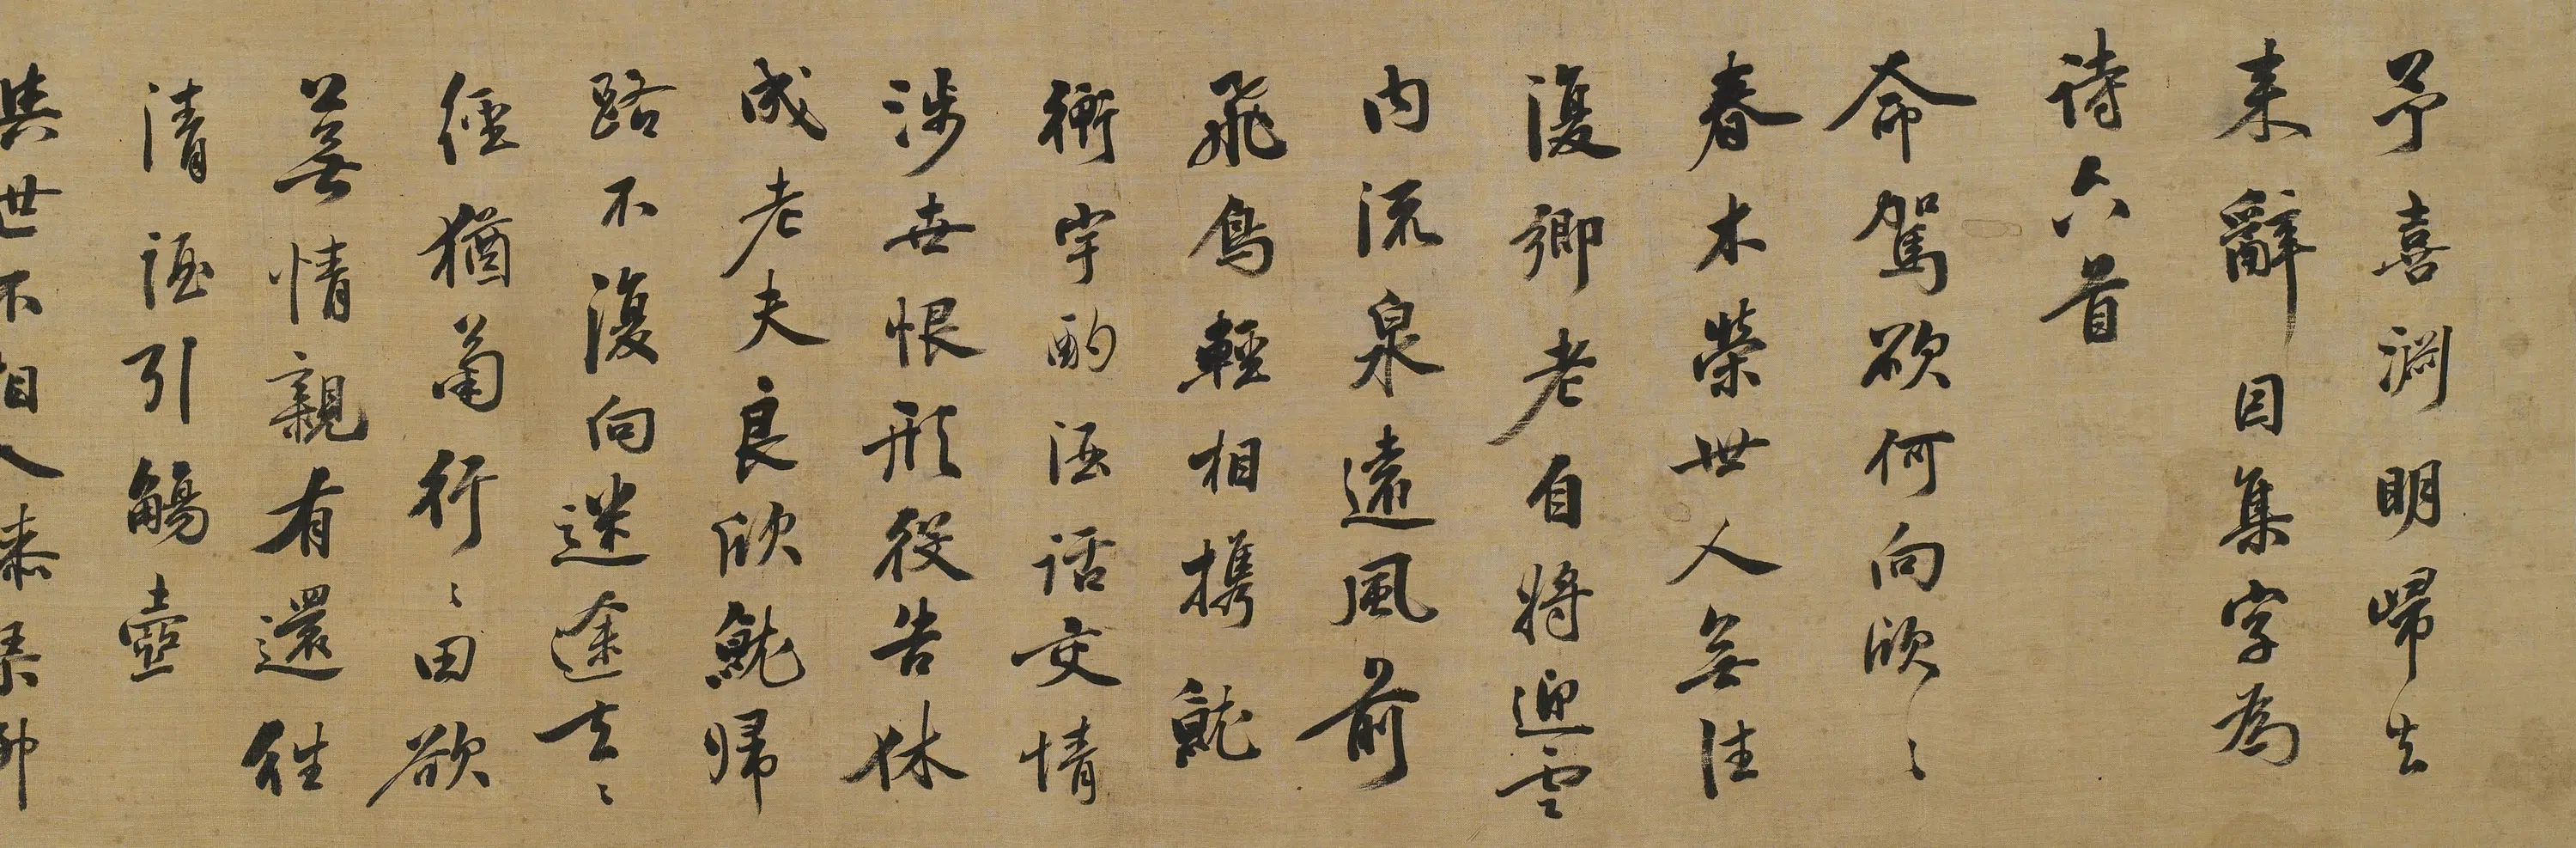 予喜淵明歸去
来辭因集字為
詩六首
命駕欲何向欣〻
春木榮世人無往
復鄉老自將迎雲
内流泉遠風前
飛鳥輕相攜就
衡宇酌酒話交情
涉世恨形役告休
成老夫良欣就歸
路不復向迷途去〻
徑猶菊行〻田欲
蕪情親有還往
清酒引觴壺
與世不相入膝琴聊